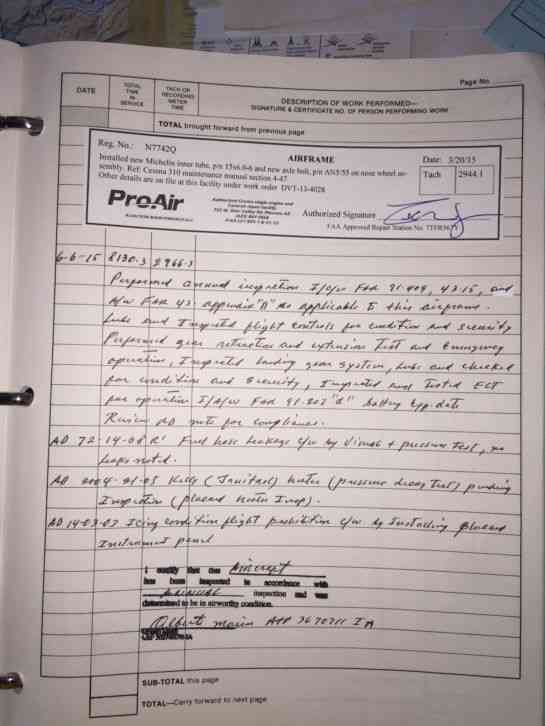 Page No.
DATE
TOTAL TIME IN SERVICE
TACH OR RECORDING METER TIME
DESCRIPTION OF WORK PERFORMED—
SIGNATURE & CERTIFICATE NO. OF PERSON PERFORMING WORK
TOTAL brought forward from previous page
Reg. No.: N7742Q AIRFRAME Date: 3/20/15
Installed new Michelin inner tube, p/n 15x6.0-6 and new axle bolt, p/n AN5-55 on nose wheel as-
sembly. Ref: Cessna 310 maintenance manual section 4-47.
Other details are on file at this facility under work order DVT-13-4028
Tach 2944.1
ProAir
Authorized Signature
FAA Approved Repair Station No.
6-6-15 8130.3 2966.3
Performed annual inspection I/A/W FAR 91.409, 43.15, and
A/W FAR 43 appendix "D" as applicable to this airframe.
Lube and Inspected flight controls for condition and security
Performed gear retraction and extension Test and Emergency
operation, Inspected landing gear system, Lube and checked
for condition and security, Inspected and Tested ELT
for operation I/A/W FAR 91.207 "d" battery Exp. date
Review AD note for compliance.
AD 72-14-08 R1 Fuel hose leakage c/w by visual + pressure Test, no
leaks noted.
AD 2004-21-05 Kelly (Janitrol) heater (pressure decay Test) pending
Inspection (placard heater Inop).
AD 14-03-03 Icing condition flight prohibition c/w by Installing placard
Instrument panel
I certify that this Aircraft
has been inspected in accordance with
annual inspection and was
determined to be in airworthy condition.
Albert A&P IA
SUB-TOTAL this page
TOTAL—Carry forward to next page